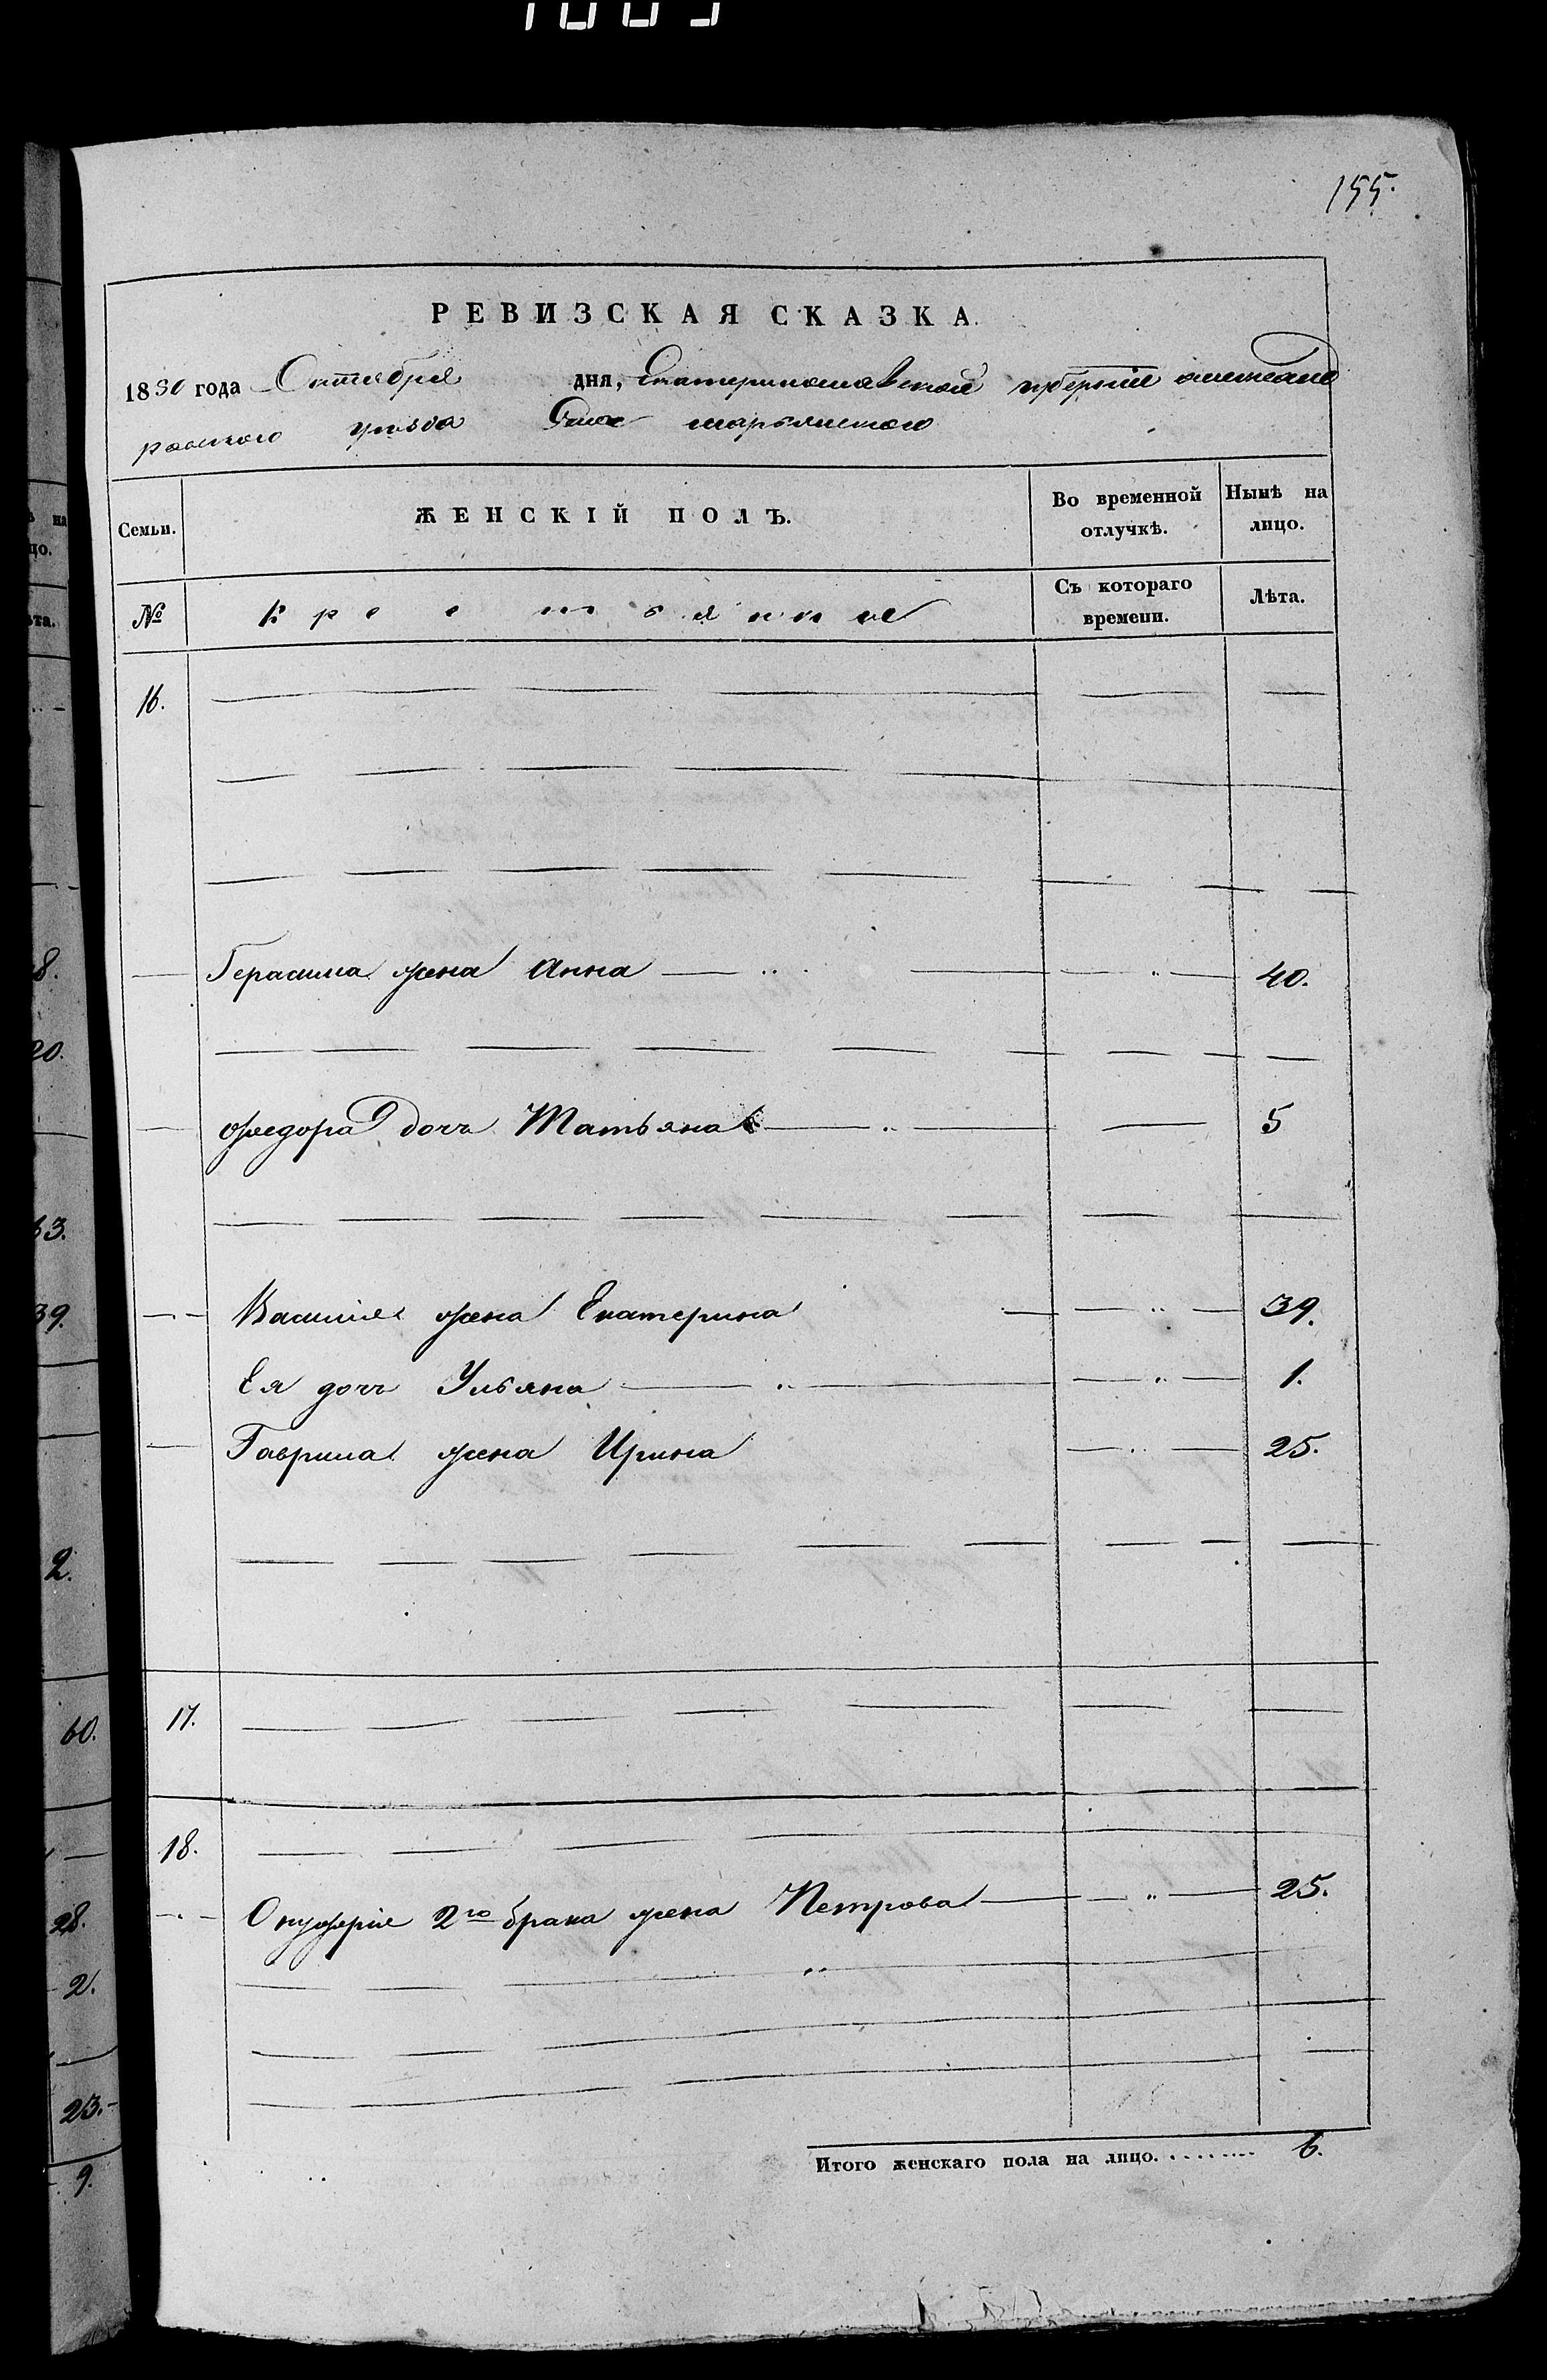 155.
РЕВИЗСКАЯ СКАЗКА.
1850 года Октября дня, Екатеринославской губерніи александ
ровского уезда Села
Семьи. ЖЕНСКІЙ ПОЛЪ. Во временной отлучкѣ. Нынѣ на лицо.
№ Крестьянки Съ котораго времени. Лѣта.
16.
Герасима жена Анна 40.
Федора дочь Татьяна 5
Василия жена Екатерина 39.
Ея дочь Ульяна 1.
Гаврила жена Ирина 25.
17.
18.
Онуфрія 2го брака жена Петрова 25.
Итого женскаго пола на лицо......... 6.